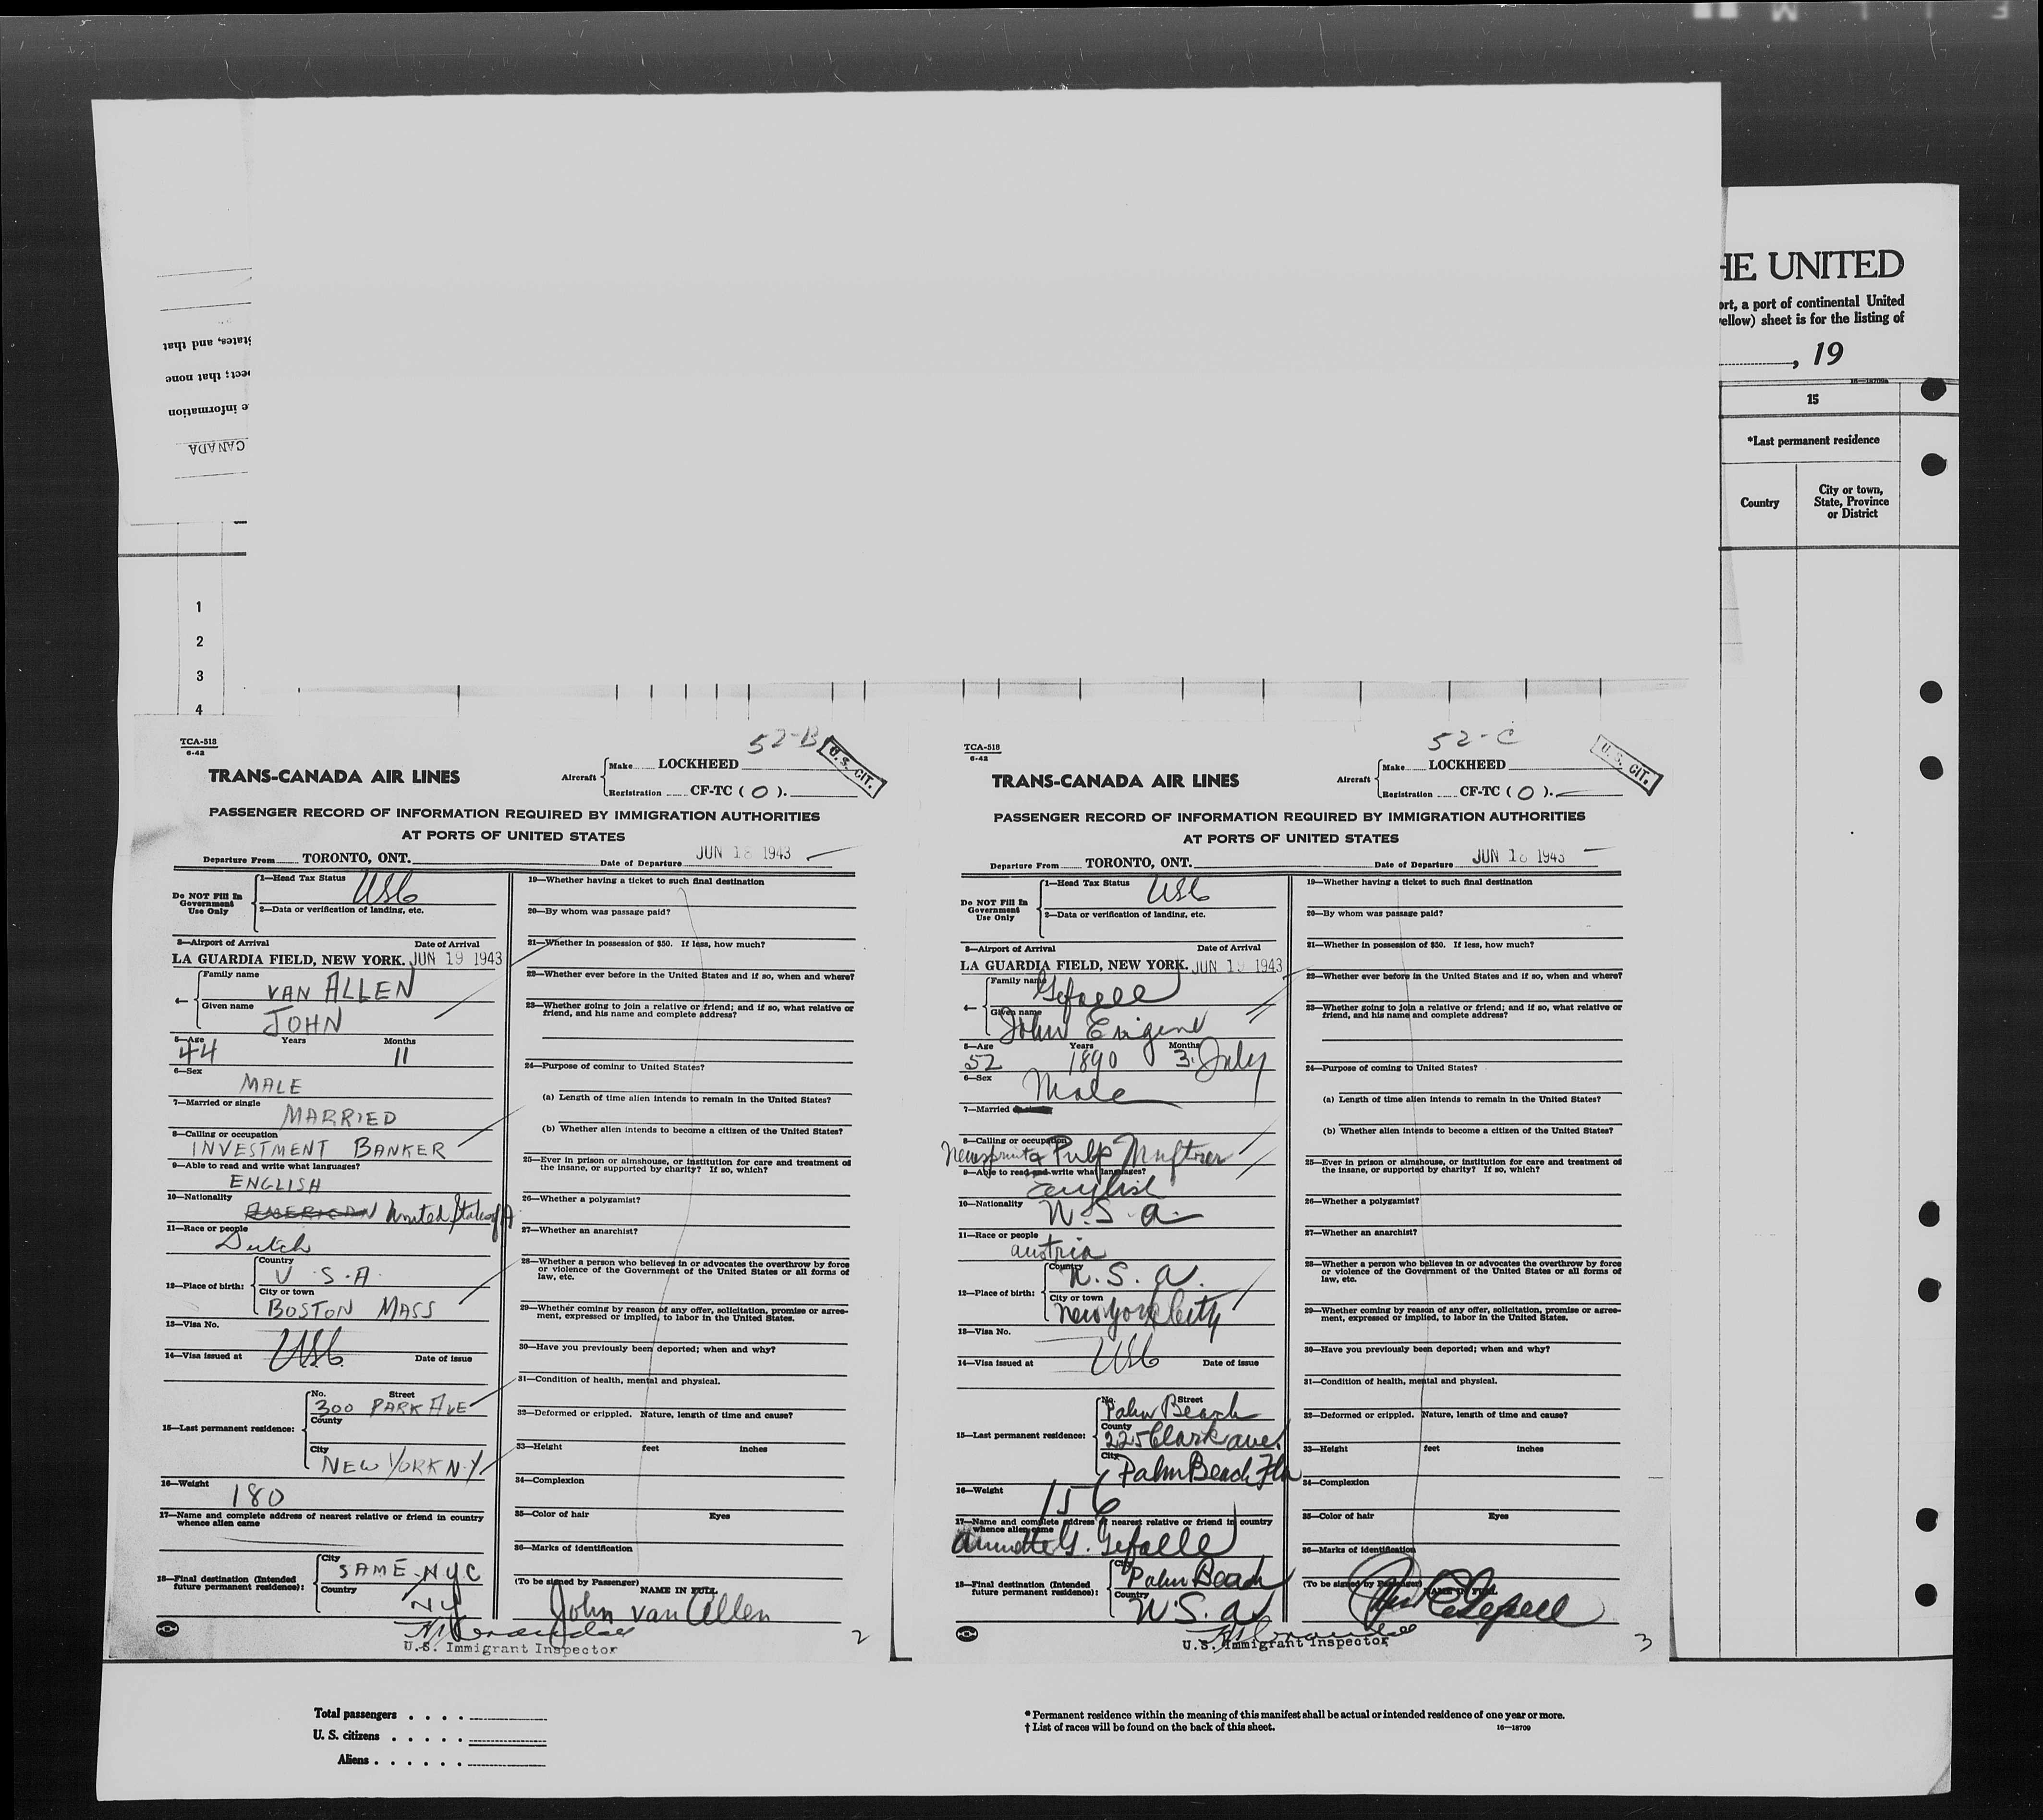 HE UNITED
ort, a port of continental United
yellow) sheet is for the listing of
, 19
16—18709a
15
*Last permanent residence
Country
City or town, State, Province or District
States, and that
ect; that none
e information
CANADA
1
2
3
4
TCA-518
6-42
52-B
U.S. CIT.
TRANS-CANADA AIR LINES
Aircraft
Make LOCKHEED
Registration CF-TC ( O ).
PASSENGER RECORD OF INFORMATION REQUIRED BY IMMIGRATION AUTHORITIES
AT PORTS OF UNITED STATES
Departure From TORONTO, ONT. Date of Departure JUN 18 1943
Do NOT Fill In Government Use Only
1—Head Tax Status USC
2—Data or verification of landing, etc.
3—Airport of Arrival Date of Arrival
LA GUARDIA FIELD, NEW YORK. JUN 19 1943
4— Family name VAN ALLEN
Given name JOHN
5—Age Years Months
44 11
6—Sex
MALE
7—Married or single
MARRIED
8—Calling or occupation
INVESTMENT BANKER
9—Able to read and write what languages?
ENGLISH
10—Nationality
AMERICAN United States of A
11—Race or people
Dutch
12—Place of birth:
Country
U.S.A.
City or town
BOSTON MASS
13—Visa No.
USC
14—Visa issued at Date of issue
15—Last permanent residence:
No. Street
300 PARK AVE
County
City
NEW YORK N.Y
16—Weight
180
17—Name and complete address of nearest relative or friend in country
whence alien came
18—Final destination (Intended
future permanent residence):
City
SAME N.Y.C
Country
NY
19—Whether having a ticket to such final destination
20—By whom was passage paid?
21—Whether in possession of $50. If less, how much?
22—Whether ever before in the United States and if so, when and where?
23—Whether going to join a relative or friend; and if so, what relative or
friend, and his name and complete address?
24—Purpose of coming to United States?
(a) Length of time alien intends to remain in the United States?
(b) Whether alien intends to become a citizen of the United States?
25—Ever in prison or almshouse, or institution for care and treatment of
the insane, or supported by charity? If so, which?
26—Whether a polygamist?
27—Whether an anarchist?
28—Whether a person who believes in or advocates the overthrow by force
or violence of the Government of the United States or all forms of
law, etc.
29—Whether coming by reason of any offer, solicitation, promise or agree-
ment, expressed or implied, to labor in the United States.
30—Have you previously been deported; when and why?
31—Condition of health, mental and physical.
32—Deformed or crippled. Nature, length of time and cause?
33—Height feet inches
34—Complexion
35—Color of hair Eyes
36—Marks of identification
(To be signed by Passenger) NAME IN FULL.
John van Allen
U.S. Immigrant Inspector
2
TCA-518
6-42
52-C
U.S. CIT.
TRANS-CANADA AIR LINES
Aircraft
Make LOCKHEED
Registration CF-TC ( O ).
PASSENGER RECORD OF INFORMATION REQUIRED BY IMMIGRATION AUTHORITIES
AT PORTS OF UNITED STATES
Departure From TORONTO, ONT. Date of Departure JUN 18 1943
Do NOT Fill In Government Use Only
1—Head Tax Status USC
2—Data or verification of landing, etc.
3—Airport of Arrival Date of Arrival
LA GUARDIA FIELD, NEW YORK. JUN 19 1943
4— Family name Gefaell
Given name
John Eugene
5—Age Years Months
52 1890 3. July
6—Sex
Male
7—Married
8—Calling or occupation
Newsprint & Pulp
9—Able to read and write what languages?
English
10—Nationality
U.S.a.
11—Race or people
austria
12—Place of birth:
Country
U.S.a.
City or town
New York City
13—Visa No.
USC
14—Visa issued at Date of issue
15—Last permanent residence:
No. Street
Palm Beach
County
225 Clark ave.
City
Palm Beach Fla
16—Weight
156
17—Name and complete address of nearest relative or friend in country
whence alien came
Annette G. Gefaell
18—Final destination (Intended
future permanent residence):
City
Palm Beach
Country
U.S.a
19—Whether having a ticket to such final destination
20—By whom was passage paid?
21—Whether in possession of $50. If less, how much?
22—Whether ever before in the United States and if so, when and where?
23—Whether going to join a relative or friend; and if so, what relative or
friend, and his name and complete address?
24—Purpose of coming to United States?
(a) Length of time alien intends to remain in the United States?
(b) Whether alien intends to become a citizen of the United States?
25—Ever in prison or almshouse, or institution for care and treatment of
the insane, or supported by charity? If so, which?
26—Whether a polygamist?
27—Whether an anarchist?
28—Whether a person who believes in or advocates the overthrow by force
or violence of the Government of the United States or all forms of
law, etc.
29—Whether coming by reason of any offer, solicitation, promise or agree-
ment, expressed or implied, to labor in the United States.
30—Have you previously been deported; when and why?
31—Condition of health, mental and physical.
32—Deformed or crippled. Nature, length of time and cause?
33—Height feet inches
34—Complexion
35—Color of hair Eyes
36—Marks of identification
(To be signed by Passenger) NAME IN FULL.
U.S. Immigrant Inspector
3
Total passengers
U. S. citizens
Aliens
* Permanent residence within the meaning of this manifest shall be actual or intended residence of one year or more.
† List of races will be found on the back of this sheet.
16—18709